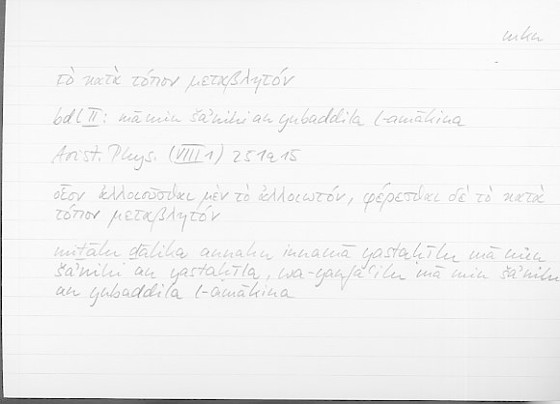 mkn
τὸ κατὰ τόπον μεταβλητόν
bdl II: mā min šaʾnihi an yubaddila l-amākina
Arist. Phys. (VIII 1) 251a15
οἷον ἀλλοιοῦσθαι μὲν τὸ ἀλλοιωτόν, φέρεσθαι δὲ τὸ κατὰ
τόπον μεταβλητόν
mitālu ḏālika annahu innamā yastaḥīlu mā min
šaʾnihi an yastaḥīla, wa-yanfaʿilu mā min šaʾnihi
an yubaddila l-amākina